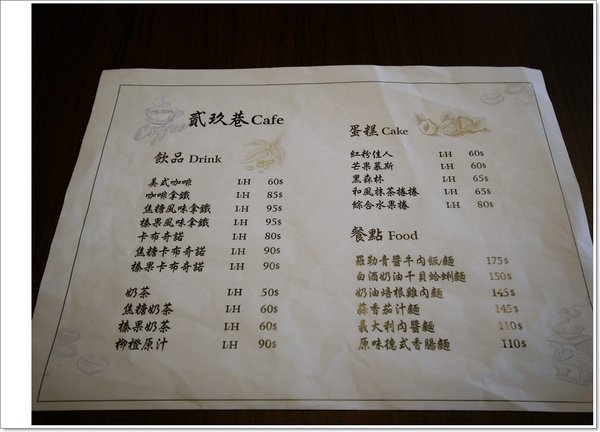 貳玖巷 Cafe
飲品 Drink
美式咖啡 I/H 60$
咖啡拿鐵 I/H 85$
焦糖風味拿鐵 I/H 95$
榛果風味拿鐵 I/H 95$
卡布奇諾 I/H 80$
焦糖卡布奇諾 I/H 90$
榛果卡布奇諾 I/H 90$
奶茶 I/H 50$
焦糖奶茶 I/H 60$
榛果奶茶 I/H 60$
柳橙原汁 I/H 90$
蛋糕 Cake
紅粉佳人 I/H 60$
芒果慕斯 I/H 60$
黑森林 I/H 65$
和風抹茶捲捲 I/H 65$
綜合水果捲 I/H 80$
餐點 Food
羅勒青醬牛肉飯/麵 175$
白酒奶油干貝蛤蜊麵 150$
奶油培根雞肉麵 145$
蒜香茄汁麵 145$
義大利肉醬麵 110$
原味德式香腸麵 110$